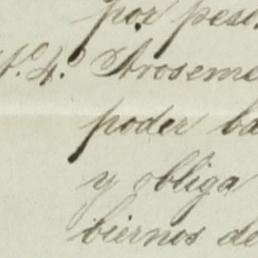 por peso
N.º 4.º Aroseme
poder ba
y obliga
biernos de